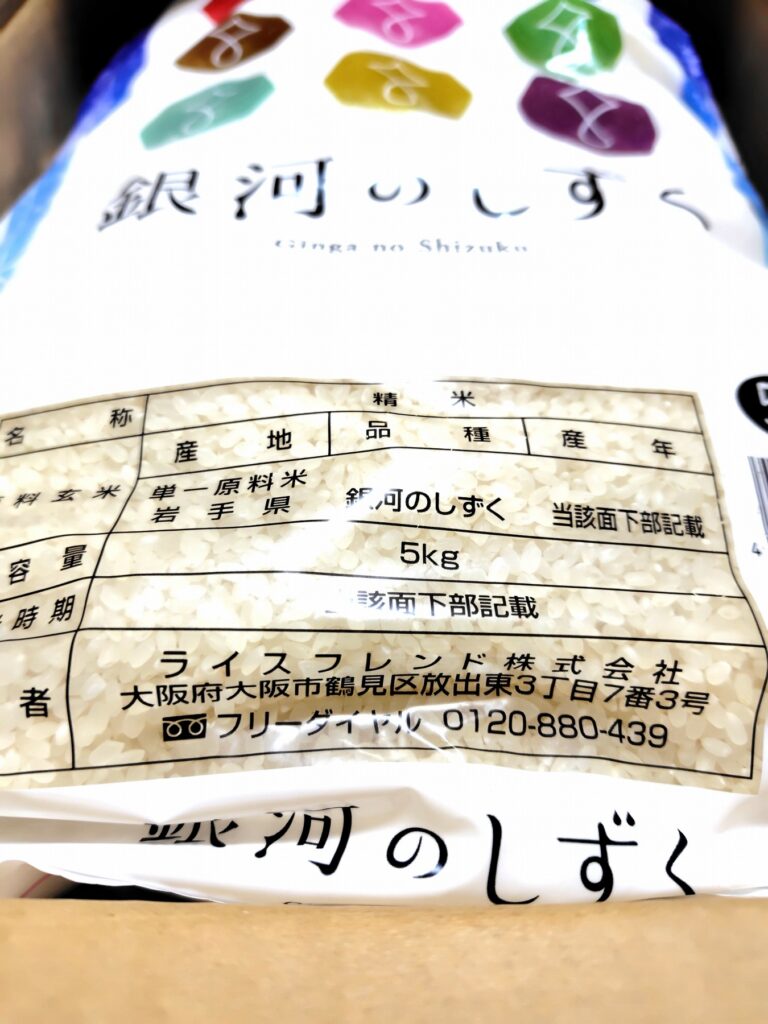 銀河のしずく
Ginga no Shizuku
名称 精米
産地 品種 産年
料玄米 単一原料米 岩手県 銀河のしずく 当該面下部記載
容量 5kg
時期 当該面下部記載
者 ライスフレンド株式会社
大阪府大阪市鶴見区放出東3丁目7番3号
フリーダイヤル 0120-880-439
銀河のしずく